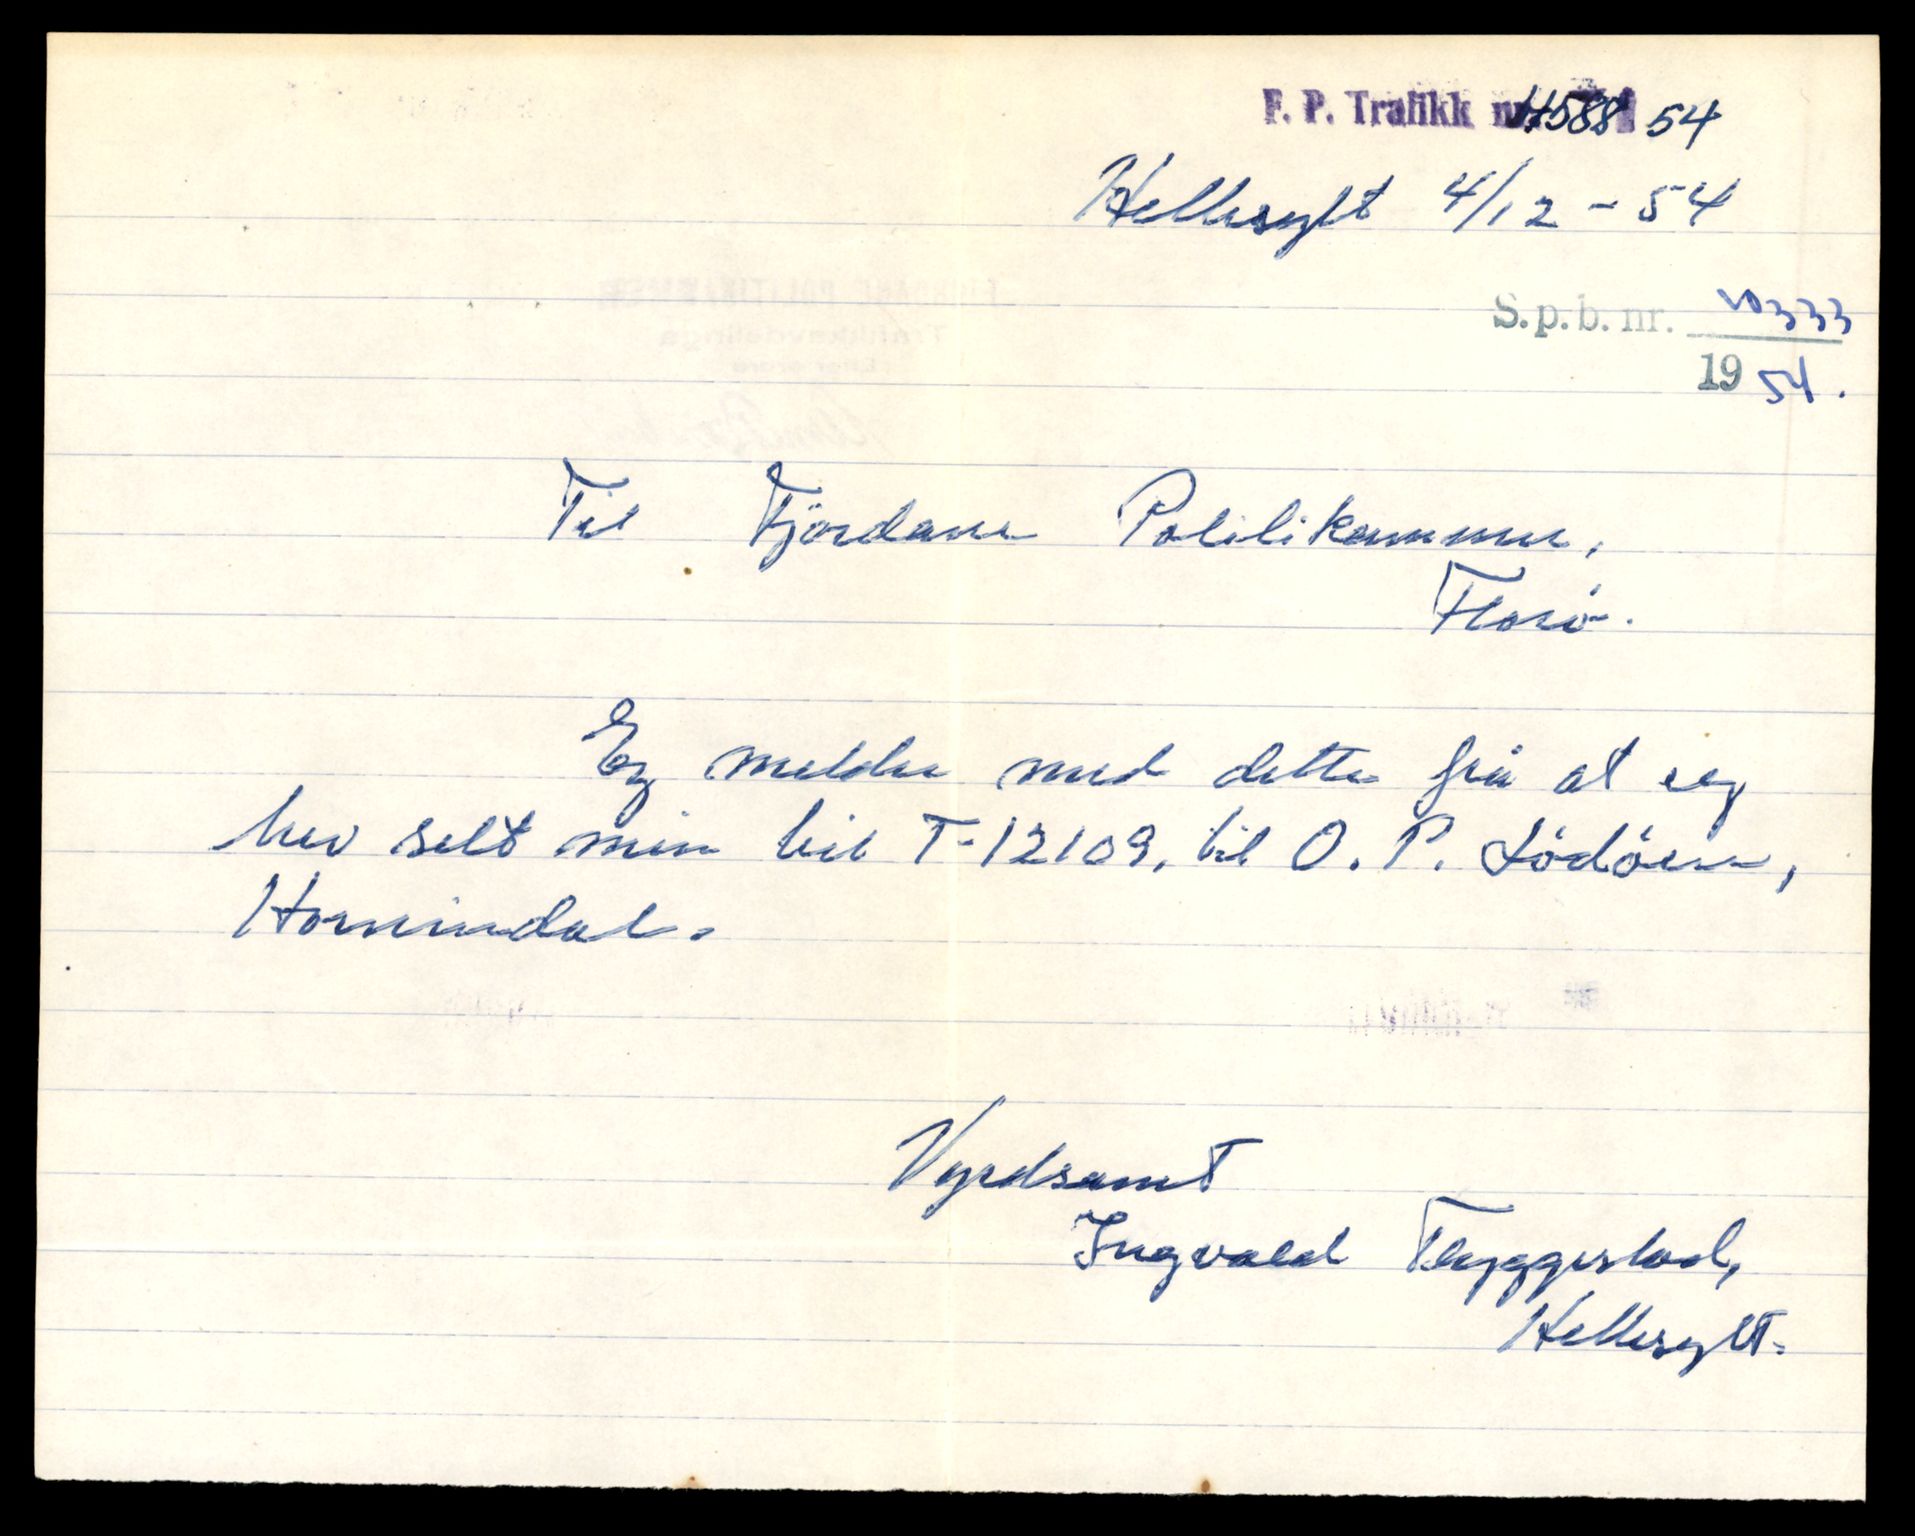 F. P. Trafikk nr. 4588 54
Hellesylt 4/12 - 54
S. p. b. nr. 10333
19 54.
Til Fjordane Politikammer,
Florö.
Eg melder med dette frå at eg
hev selt min bil T-12109, til O. P. Lödöen,
Hornindal.
Vyrdsamt
Ingvald Flyggestad,
Hellesylt.